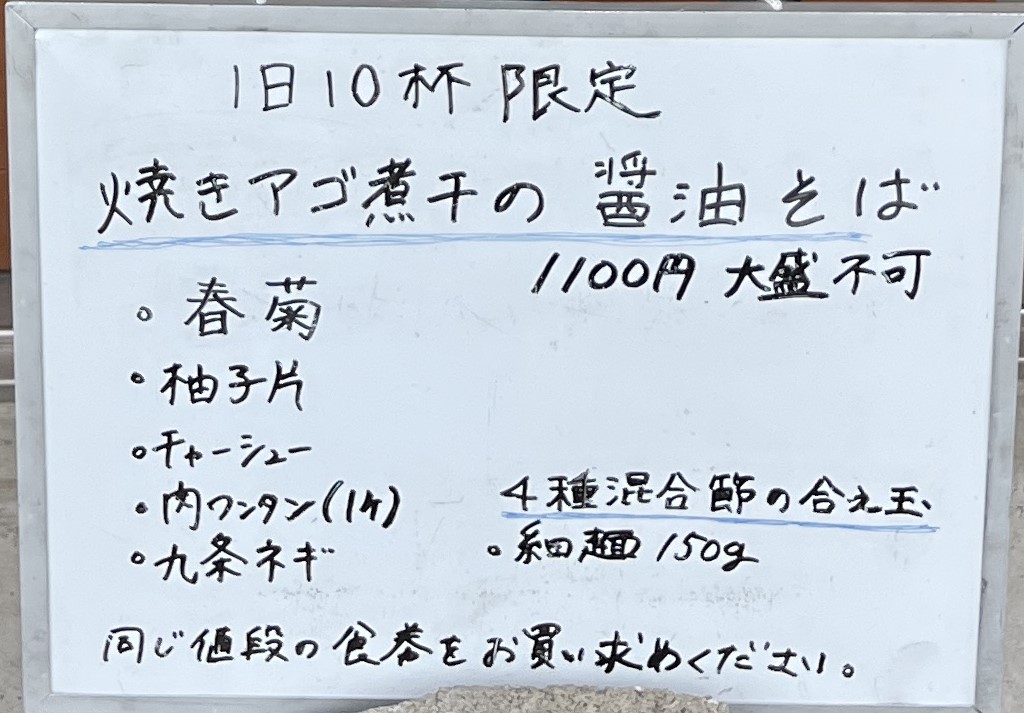 1日10杯 限定
焼きアゴ煮干の 醤油そば
1100円 大盛不可
・春菊
・柚子片
・チャーシュー
・肉ワンタン(1ヶ)
・九条ネギ
4種混合節の合え玉
・細麺 150g
同じ値段の食券をお買い求めください。